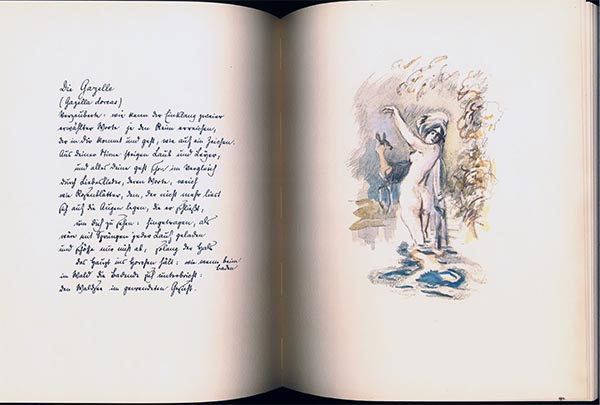 Die Gazelle
(Gazella dorcas)
Verzauberte: wie kann der Einklang zweier
erwählter Worte je den Reim erreichen,
der in dir kommt und geht, wie auf ein Zeichen.
Aus deiner Stirne steigen Laub und Leyer,
und alles Deine geht schon im Vergleich
durch Liebeslieder, deren Worte, weich
wie Rosenblätter, dem, der nicht mehr liest
sich auf die Augen legen, die er schließt,
um dich zu sehen: hingetragen, als
wäre mit Sprüngen jeder Lauf geladen
und schösse nur nicht ab, solang der Hals
das Haupt ins Horchen hält: wie wenn beim
baden
im Wald die Badende sich unterbricht:
den Waldsee im gewendeten Gesicht.